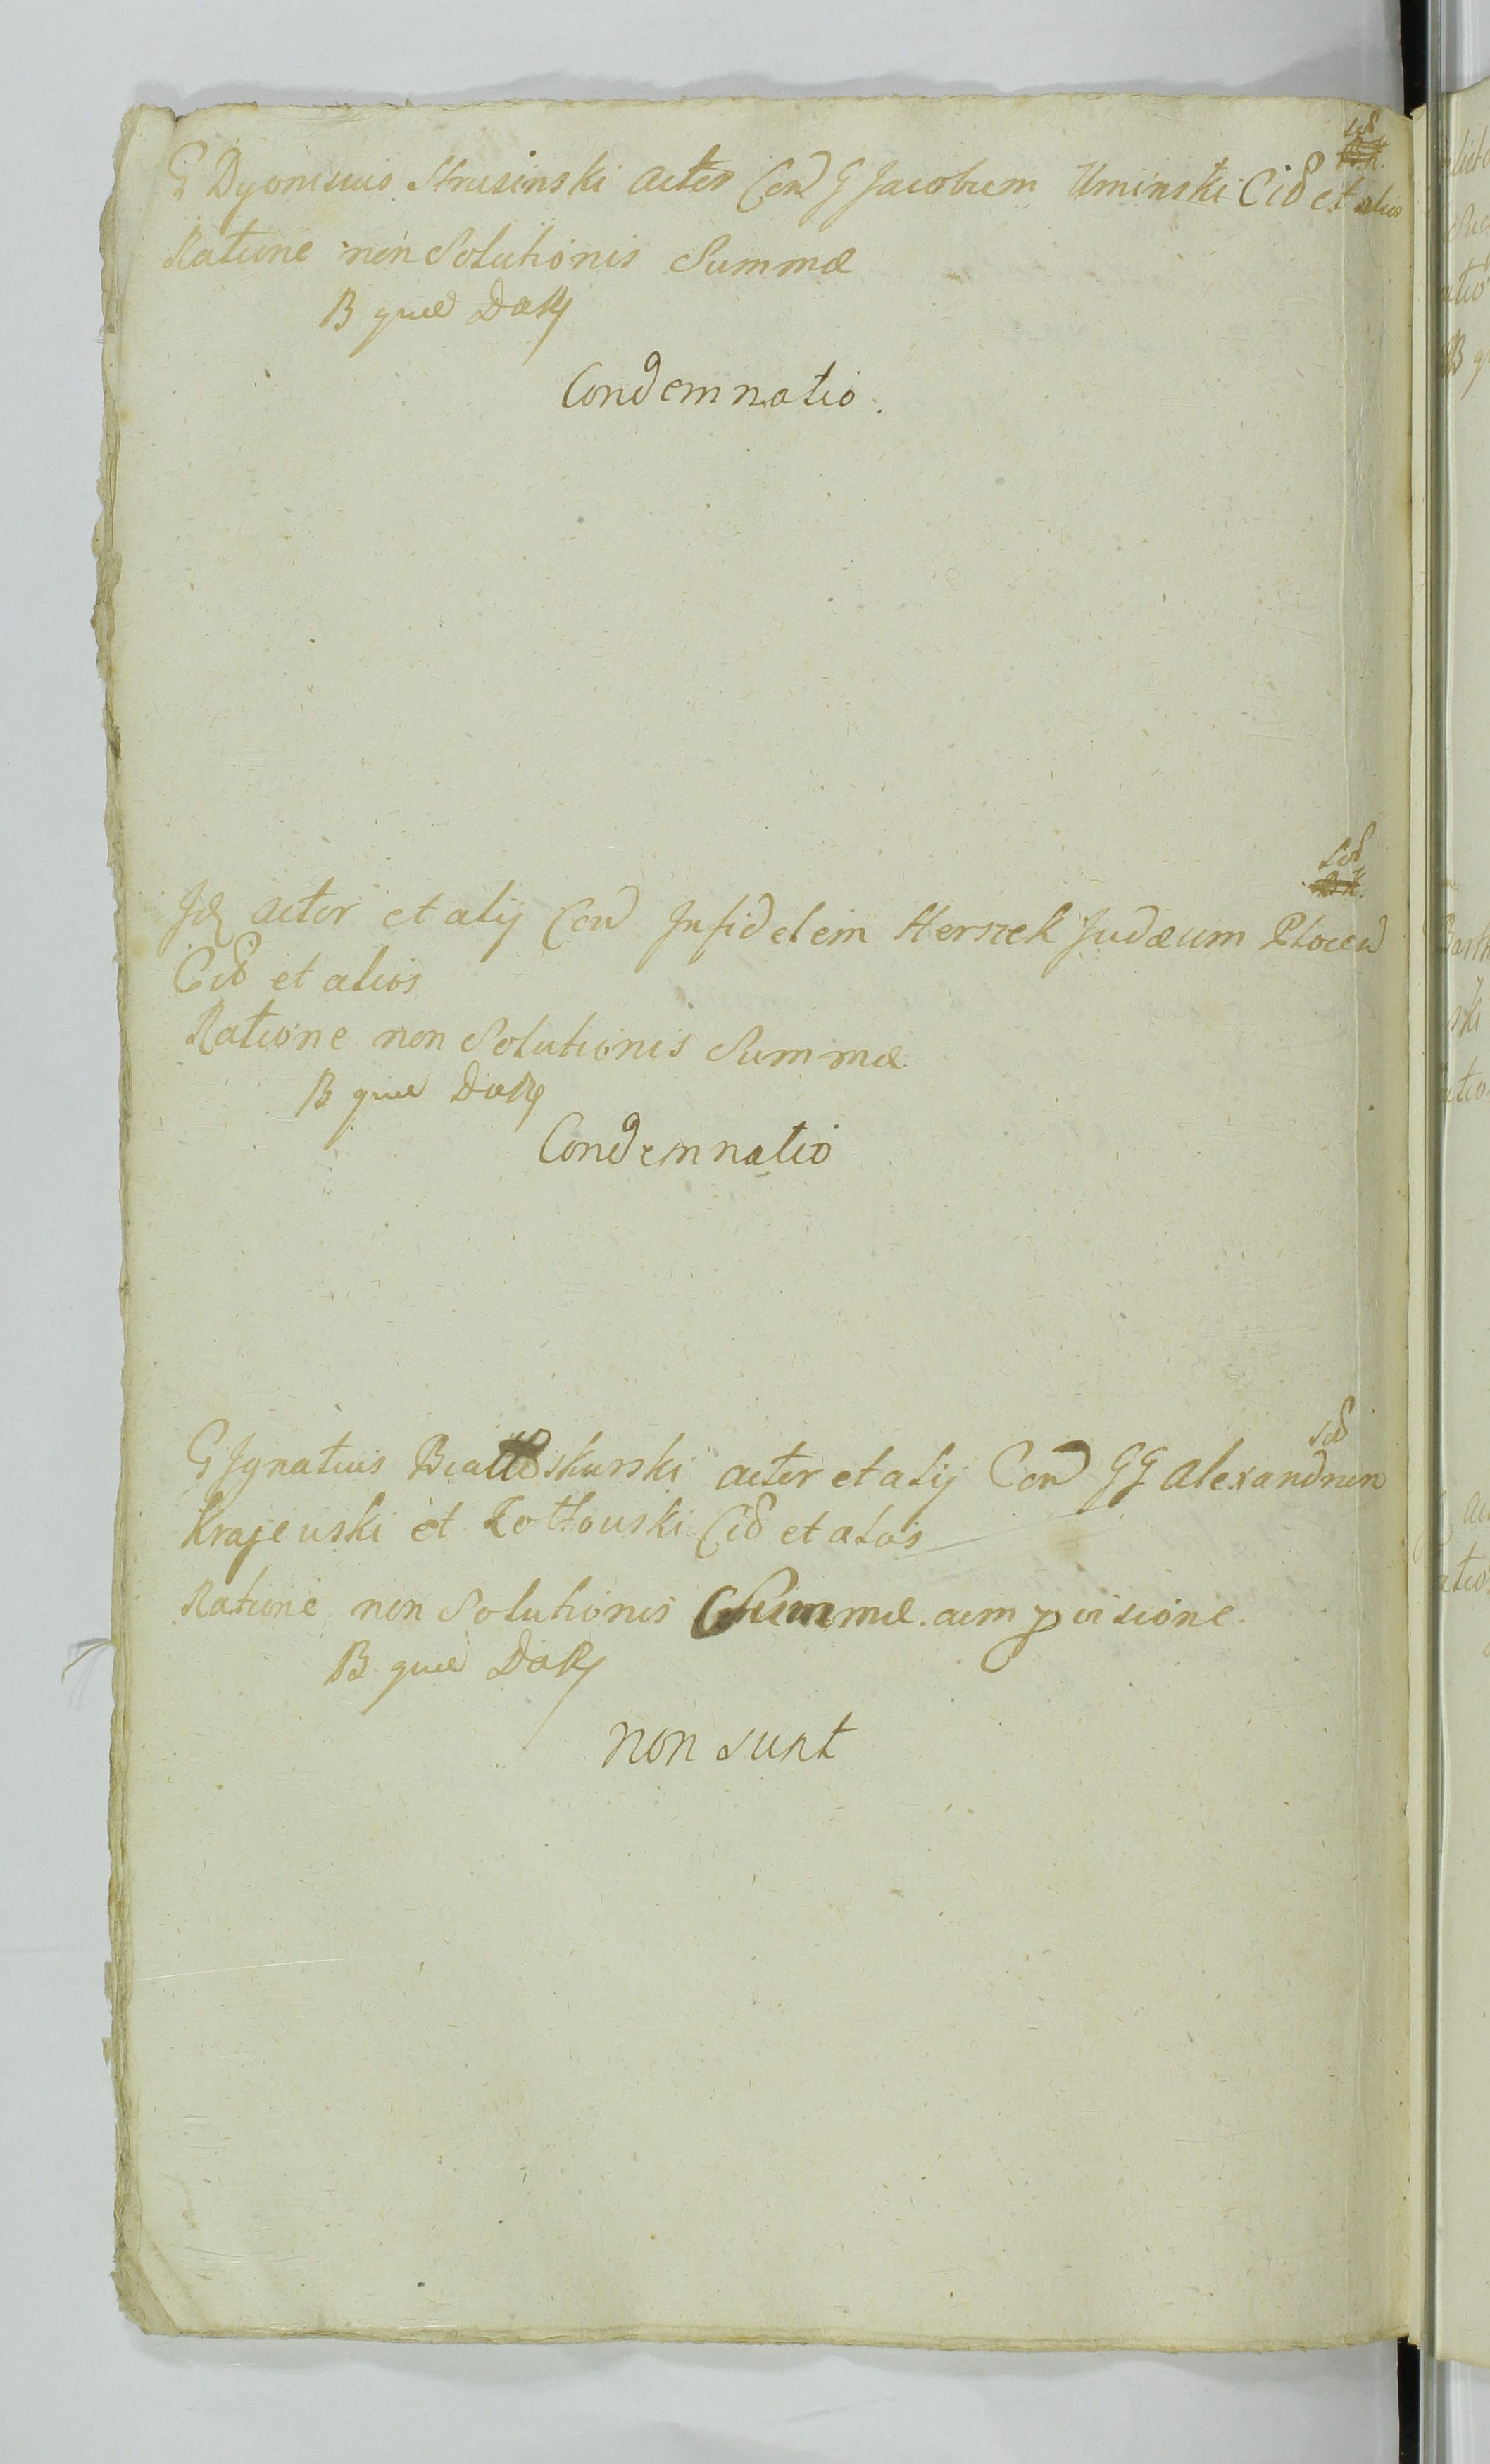 G Dyonisius Strusinski Actor Con G Jacobum Uminski Cid et alios
Ratione non Solutionis Summæ
B quæ
Condemnatio.
Id Actor et alij Con Infidelem Herszek Judæum Plocen
Cid et alios
Ratione non Solutionis Summæ
B quæ
Condemnatio
G Ignatius Białoskurski Actor et alij Con GG Alexandrum
Krajewski et Kotłowski Cid et alos
Ratione non Solutionis Summæ cum provisione
B quæ
non sunt